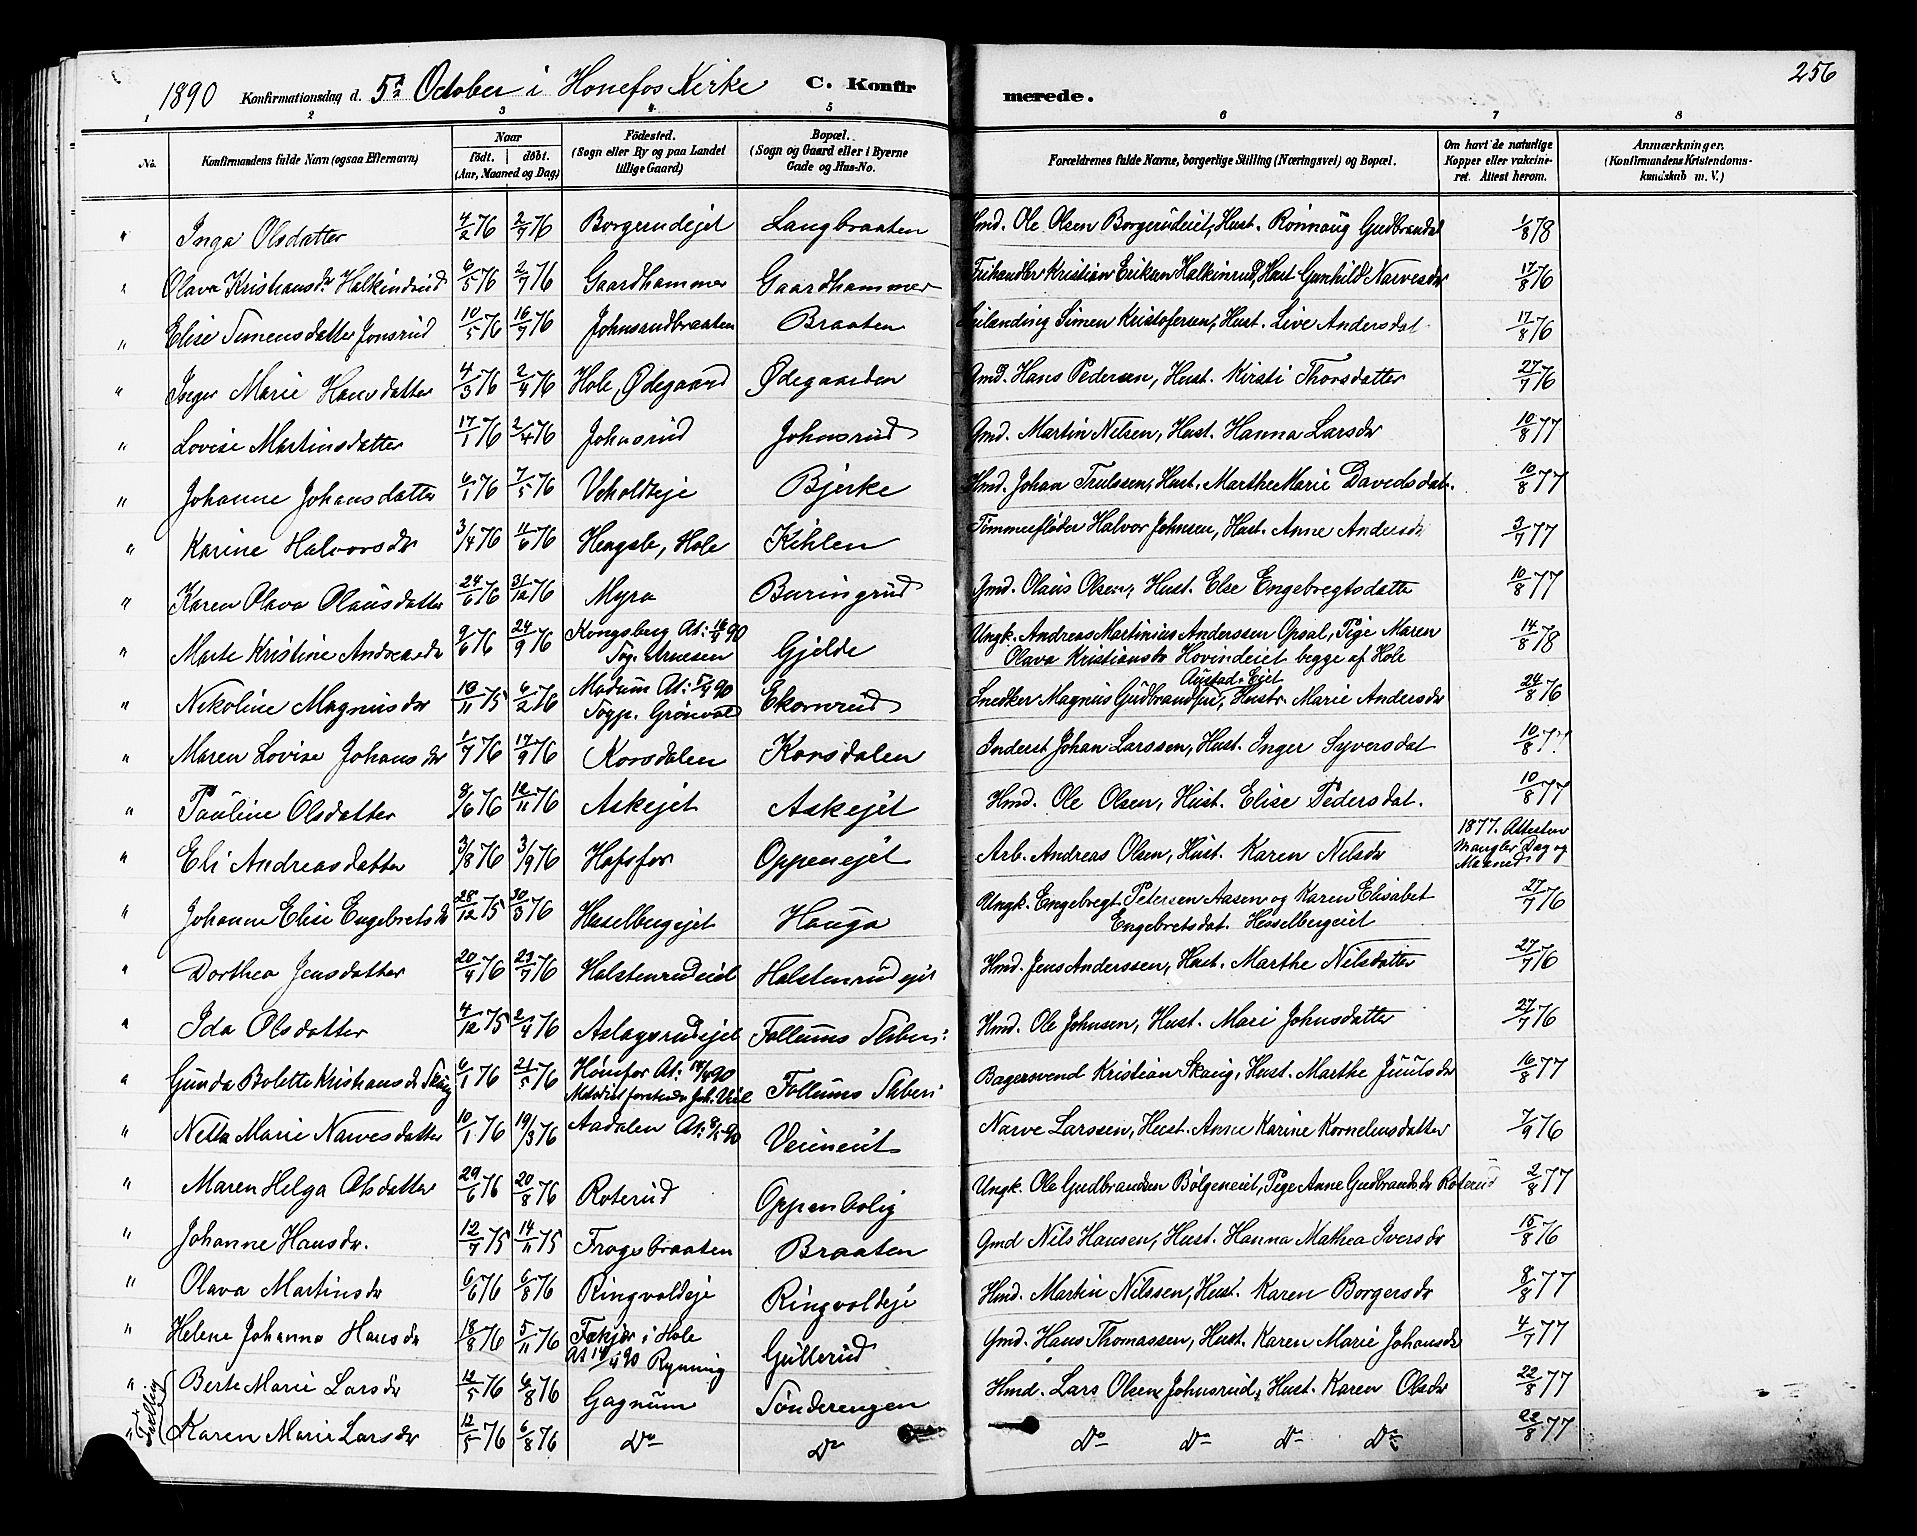 256
1890 Konfirmationsdag d. 5te October i Hønefos Kirke C. Konfirmerede.
1 2 3 4 5 6 7 8
No. Konfirmandens fulde Navn (ogsaa Efternavn) Naar födt. döbt. (Aar, Maaned og Dag) Födested. (Sogn eller By og paa Landet tillige Gaard) Bopæl. (Sogn og Gaard eller i Byerne Gade og Hus-No. Forældrenes fulde Navne, borgerlige Stilling (Næringsvei) og Bopæl. Om havt de naturlige Kopper eller vakcineret. Attest herom. Anmærkninger. (Konfirmandens Kristendomskundskab m. V.)
" Inga Olsdatter 4/2 76 2/7 76 Borgerudejet Langbraaten Hmd. Ole Olsen Borgerudeiet, Hust. Rönnaug Gudbrandsd 1/8 78
" Olava Kristiansdr Halkindrud 6/5 76 2/7 76 Gaardhammer Gaardhammer Frihandler Kristian Eriksen Halkinrud, Hust Gunhild Narvesdr 17/8 76
" Elise Simensdatter Jonsrud 10/5 76 16/7 76 Johnsrudbraaten Braaten Leilænding Simen Kristofersen, Hust. Live Andersdat 17/8 76
" Inger Marie Hansdatter 4/3 76 2/4 76 Hole, Ødegaard Ødegaarden Gmd. Hans Pedersen, Hust. Kirsti Thorsdatter 27/7 76
" Lovise Martinsdatter 17/1 76 2/4 76 Johnsrud Johnsrud Gmd. Martin Nilsen, Hust. Hanna Larsdr 10/8 77
" Johanne Johansdatter 6/1 76 7/5 76 Veholdteje Bjerke Hmd. Johan Trulssen, Hust. Marthe Marie Davedsdat. 10/8 77
" Karine Halvorsdr 3/4 76 11/6 76 Hengsle, Hole Kihlen Tömmerfløder Halvor Johnsen, Hust. Anne Andersdr 3/7 77
" Karen Olava Olausdatter 24/6 76 31/12 76 Myra Buringrud Gmd. Olaus Olsen, Hust. Else Engebregtsdatte 10/8 77
" Marte Kristine Andreasdr 9/6 76 24/9 76 Kongsberg At: 16/4 90 Gjelde Ungk. Andreas Martinius Anderssen Opsal, Pige Maren 14/8 78
Sog. Arnesen Olava Kristiansdr Hovindeiet begge af Hole
" Nikoline Magnusdr 10/11 75 6/2 76 Modum At: 5/4 90 Sogp. Grönvold Ekornrud Snedker Magnus Gudbrandsen, Austad-Eiet Hustr. Marie Andersdr 24/8 76
" Maren Lovise Johansdr 1/7 76 17/9 76 Korsdalen Korsdalen Inderst Johan Larssen, Hust. Inger Syversdat 10/8 77
" Pauline Olsdatter 8/6 76 12/11 76 Askejet Askejet Hmd. Ole Olsen, Hust. Elise Pedersdat. 10/8 77
" Eli Andreasdatter 3/8 76 3/9 76 Hofsfos Oppenejet Arb. Andreas Olsen, Hust. Karen Nilsdr 1877. Attesten mangler Dag og Maaned
" Johanne Elise Engebretsdr 28/12 75 30/3 76 Hesselbergejet Hauga Ungk. Engebregt Petersen Aasen og Karen Elisabet 27/7 76
Engebretsdat. Hesselbergeiet
" Dorthea Jensdatter 20/4 76 23/7 76 Halstenrudeiet Halstenrudejet Hmd. Jens Anderssen, Hust. Marthe Nilsdatter 27/7 76
" Ida Olsdatter 4/12 75 2/4 76 Aslagsrudejet Follums Sliberi Hmd. Ole Johnsen, Hust. Mari Johnsdatter 27/7 76
" Gunda Bolette Kristiansdr Skaug 6/1 76 21/5 76 Hönefos At: 14/4 90 Metodistforstander Joh. Follums Sliberi Bagersvend Kristian Skaug, Hust. Marthe Juulsdr 16/8 77
" Netta Marie Narvesdatter 10/1 76 19/3 76 Aadalen At: 8/5 90 Veieneiet Narve Larssen, Hust. Anne Karine Korneliusdatter 7/9 76
" Maren Helga Olsdatter 29/6 76 20/8 76 Roterud Oppenbolig Ungk. Ole Gudbrandsen Bölgeneiet, Pige Anne Gudbrandsdr Roterud 2/8 77
" Johanne Hansdr. 12/7 75 14/11 75 Frogsbraaten Braaten Gmd Nils Hansen, Hust. Hanna Mathea Iversdr 15/8 76
" Olava Martinsdr 6/6 76 6/8 76 Ringvoldeje Ringvoldeje Hmd. Martin Nilssen, Hust. Karen Borgersdr 8/8 77
" Helene Johanne Hansdr 18/8 76 5/11 76 Fekjær i Hole At 14/4 90 Rynning Gullerud Gmd. Hans Thomassen, Hust. Karen Marie Johansdr 4/7 77
" Tvilling Berte Marie Larsdr 12/5 76 6/8 76 Gagnum Sönderengen Hmd. Lars Olsen Johnsrud, Hust. Karen Olsdr 22/8 77
" Karen Marie Larsdr 12/5 76 6/8 76 Do Do Do Do Do Do 22/8 77